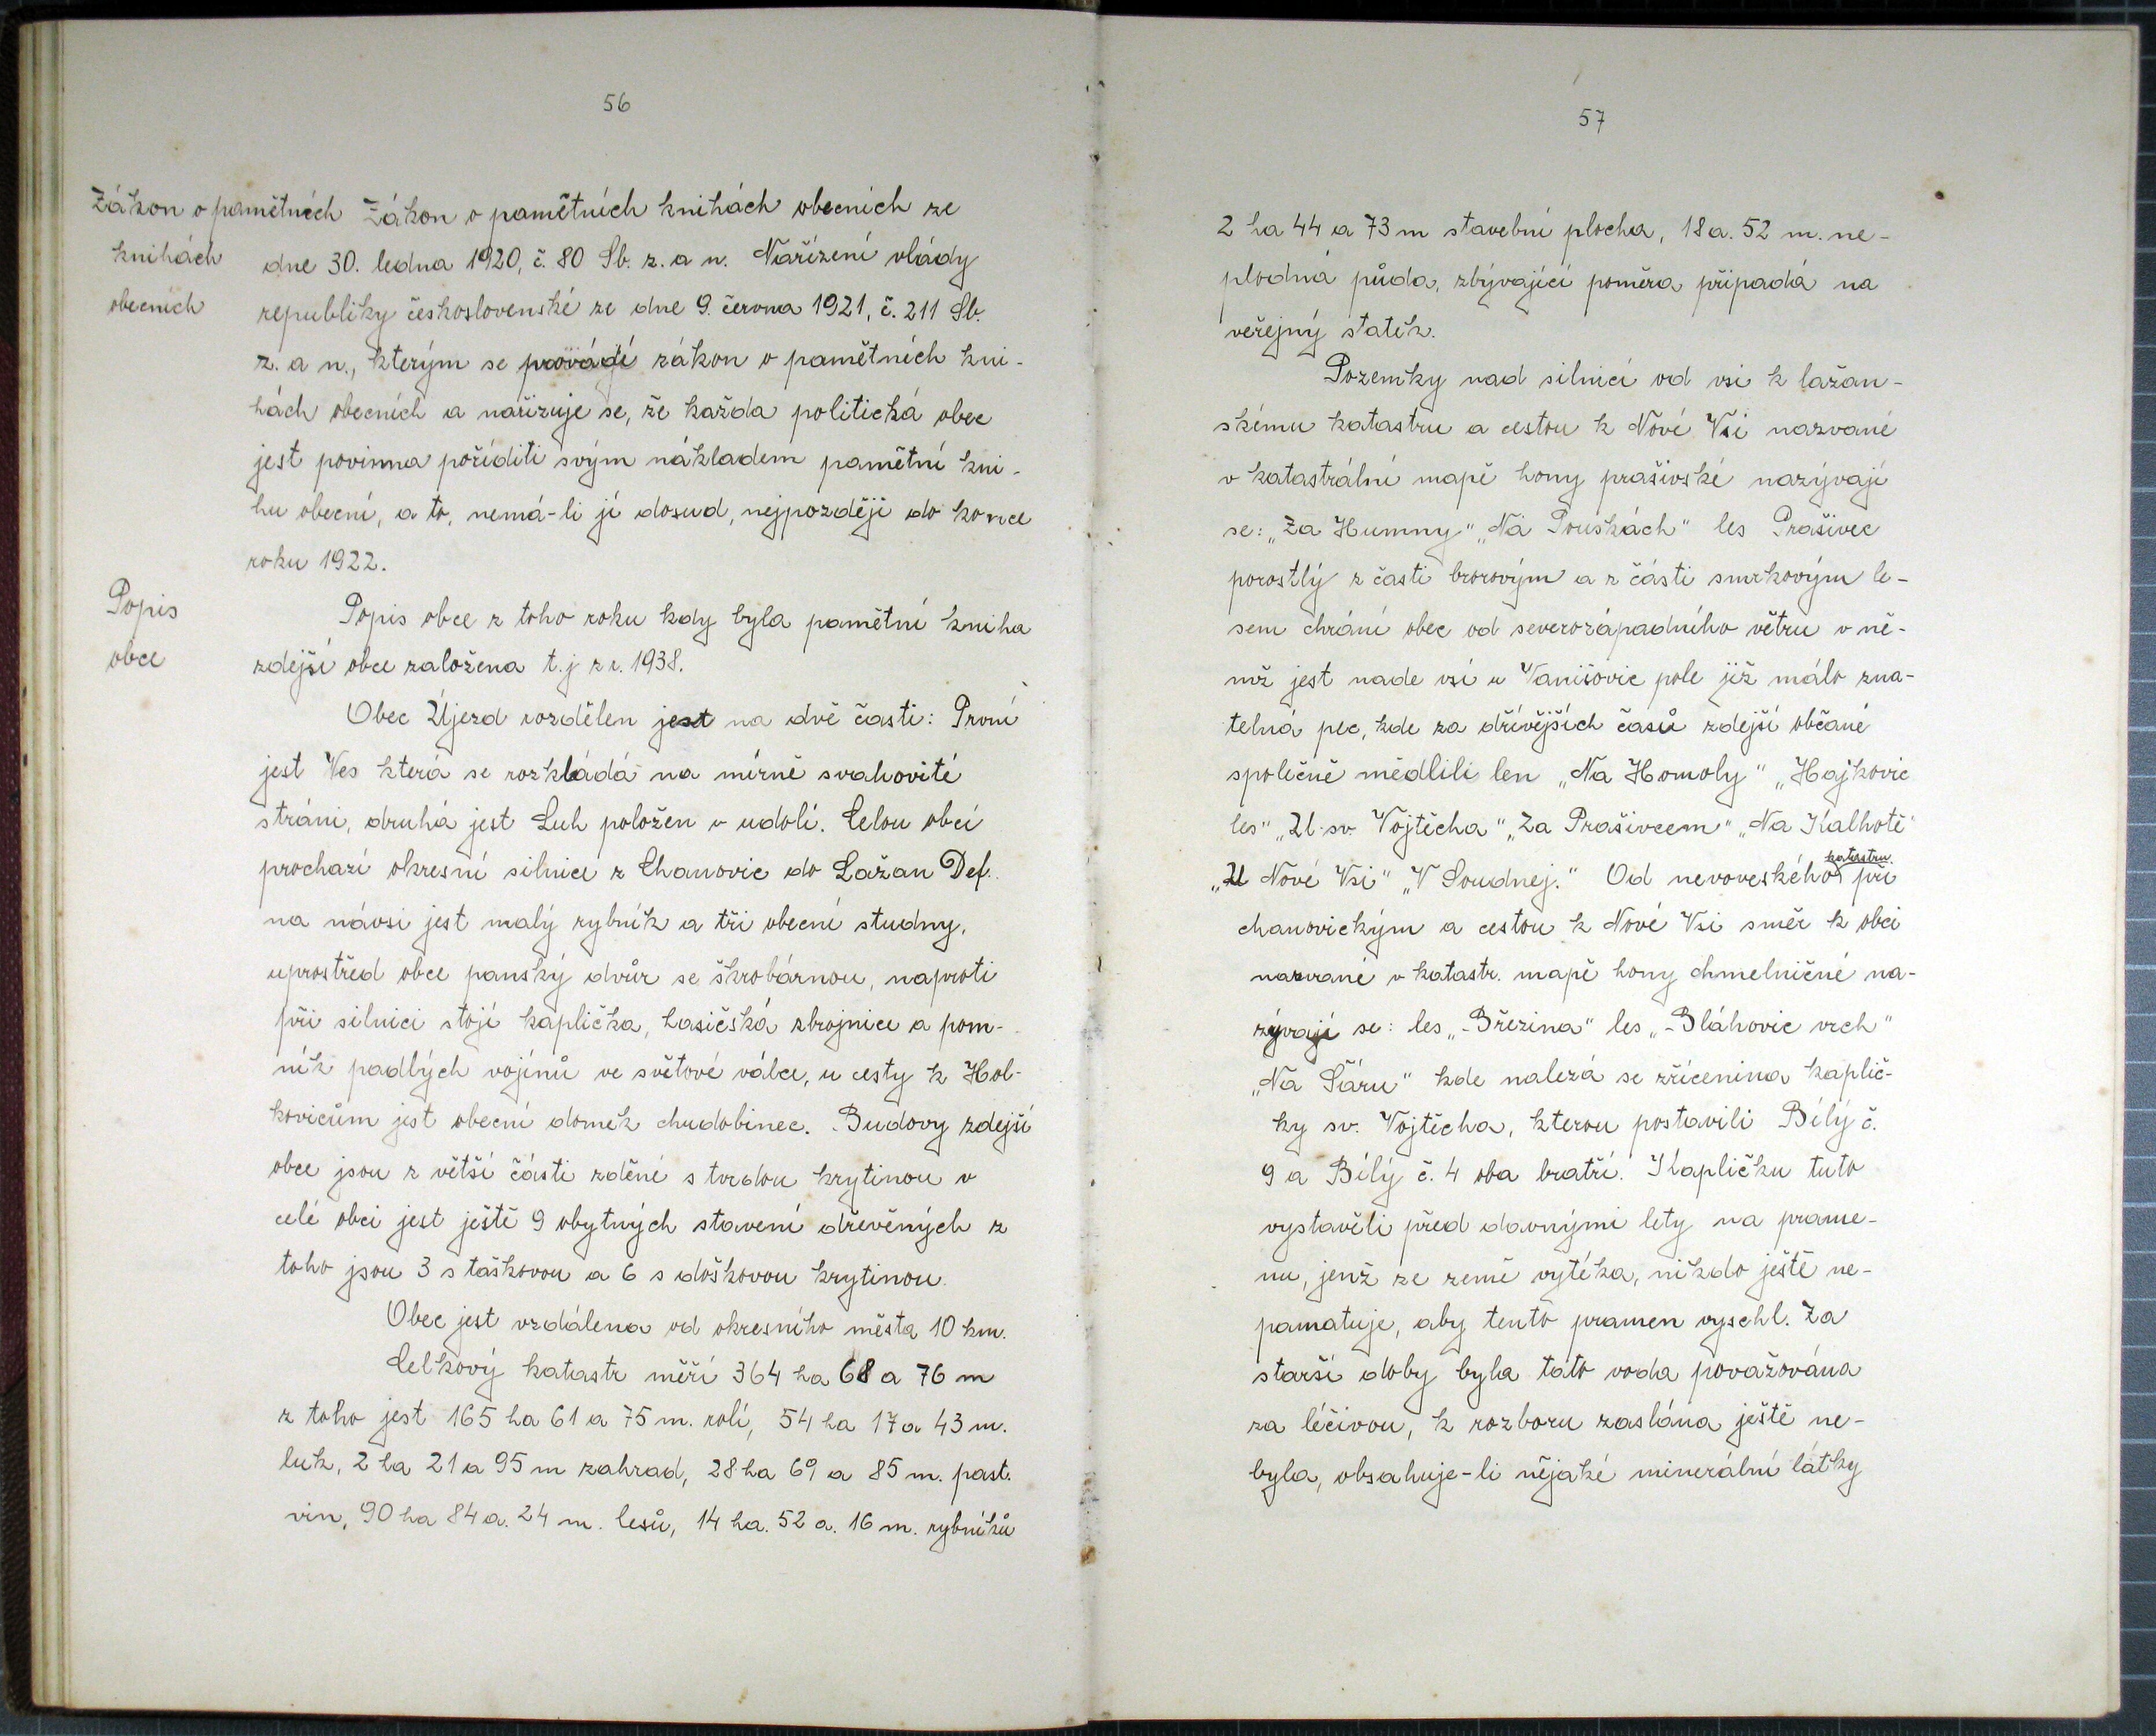 56
Zákon o pamětních
knihách
obecních
Zákon o pamětních knihách obecních ze
dne 30. ledna 1920, č. 80 Sb. z. a n. Nařízení vlády
republiky československé ze dne 9. června 1921, č. 211 Sb.
z. a n., kterým se provádí zákon o pamětních kni-
hách obecních a nařizuje se, že každa politická obec
jest povinna poříditi svým nákladem pamětní kni-
hu obecní, a to, nemá-li jí dosud, nejpozději do konce
roku 1922.
Popis
obce
Popis obce z toho roku kdy byla pamětní kniha
zdejší obce založena t.j z r. 1938.
Obec Újezd rozdělen jest na dvě časti: První
jest Ves která se rozkládá na mírně svahovité
stráni, druhá jest Luh položen v udolí. Celou obcí
prochazí okresní silnice z Chanovic do Lažan Def.
na návsi jest malý rybník a tři obecní studny,
uprostřed obce panský dvůr se škrobárnou, naproti
při silnici stojí kaplička, hasičská zbrojnice a pom-
ník padlých vojínů ve světové válce, u cesty k Hol-
kovicům jest obecní domek chudobinec. Budovy zdejší
obce jsou z větší části zděné s tvrdou krytinou v
celé obci jest ještě 9 obytných stavení dřevěných z
toho jsou 3 s taškovou a 6 s doškovou krytinou.
Obec jest vzdálena od okresního města 10 km.
Celkový katastr měří 364 ha 68 a 76 m
z toho jest 165 ha 61 a 75 m. rolí, 54 ha 17 a 43 m.
luk, 2 ha 21 a 95 m zahrad, 28 ha 69 a 85 m. past.
vin, 90 ha 84 a. 24 m. lesů, 14 ha. 52 a. 16 m. rybníků
57
2 ha 44 a 73 m stavební plocha, 18 a. 52 m. ne-
plodná půda, zbývající poměra připadá na
veřejný statek.
Pozemky nad silnicí od vsi k lažan-
skému katastru a cestou k Nové Vsi nazvané
v katastrální mapě hony prašivské nazývají
se: „Za Humny" „Na Pouskách" les Prašivec
porostlý z časti borovým a z části smrkovým le-
sem chrání obec od severozápadního větru v ně-
mž jest nade vsí u Vanišovic pole již málo zna-
telná pec, kde za dřívějších časů zdejší občané
společně mědlili len „Na Homoly" „Hajkovic
les" „U sv. Vojtěcha" „Za Prašivcem" „Na Kalhotě"
„U Nové Vsi" „V Soudnej." Od novoveského katastru při
chanovickým a cestou k Nové Vsi směr k obci
nazvané v katastr. mapě hony chmelničné na-
zývají se: les „Březina" les „Bláhovic vrch"
„Na Šáru" kde nalezá se zřícenina kaplič-
ky sv. Vojtěcha, kterou postavili Bílý č.
9 a Bílý č. 4 oba bratří. Kapličku tuto
vystavěli před davnými lety na prame-
nu, jenž ze země vytéka, nikdo ještě ne-
pamatuje, aby tento pramen vyschl. Za
starší doby byla tato voda považována
za léčivou, k rozboru zaslána ještě ne-
byla, obsahuje-li nějaké minerální látky